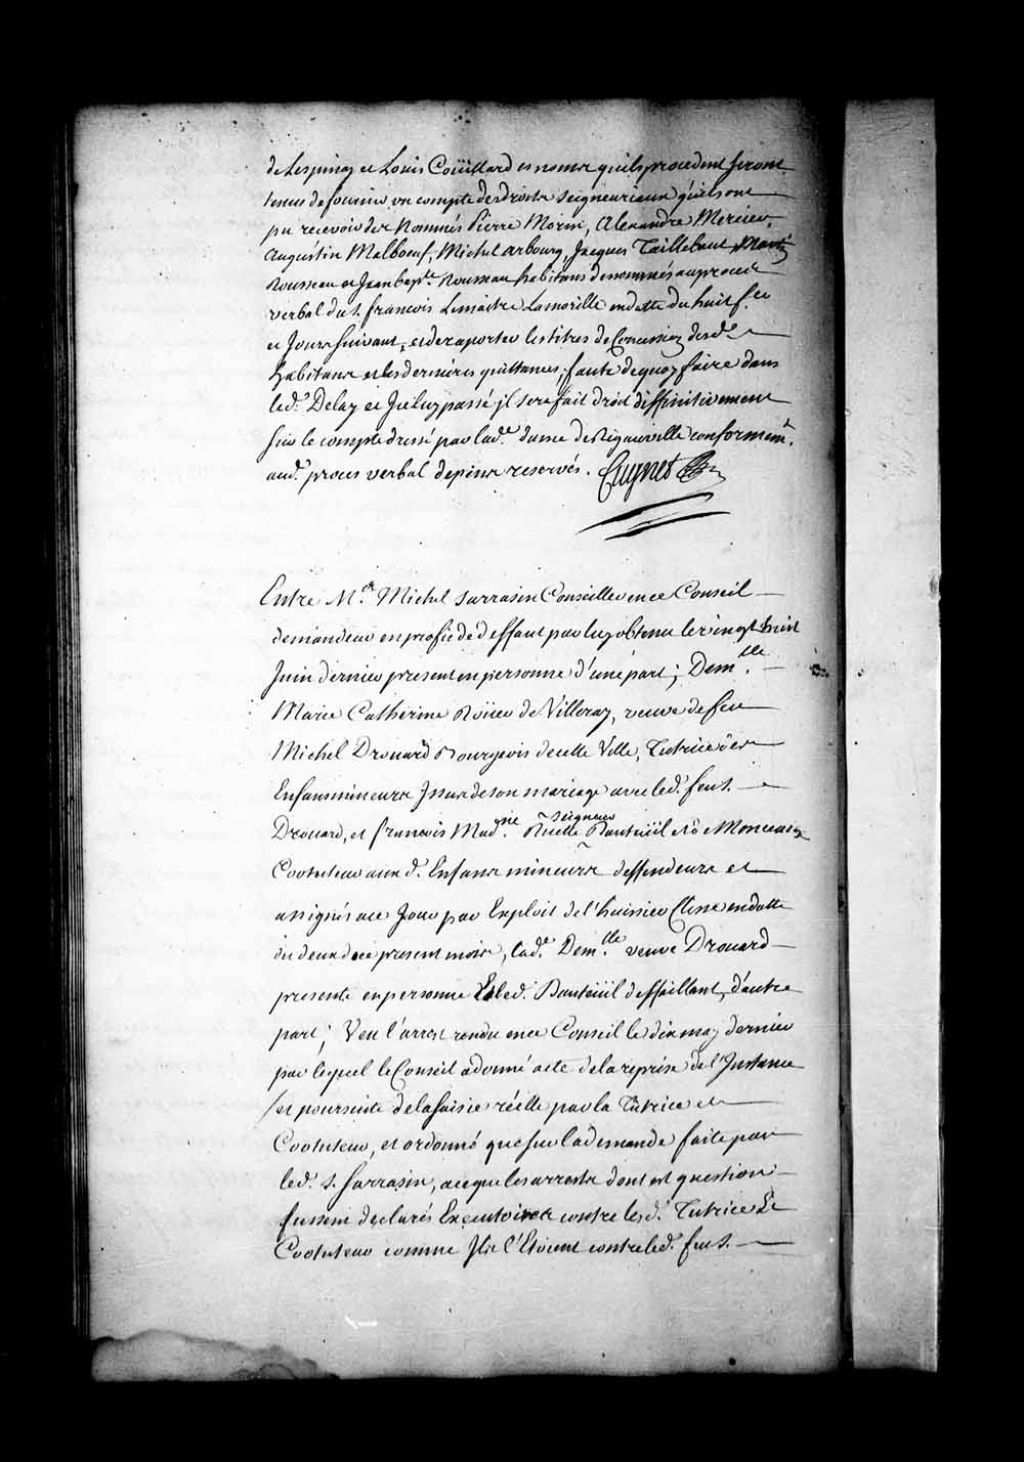 de Lespinay et Louis Coüillard es noms quils procedent seront
tenus de fournir un compte des droits seigneuriaux qu'ils ont
pu recevoir des nommés Pierre Morin, Alexandre Mercier,
Augustin Malboeuf, Michel arbourg, Jacques Taillebaut,
Rousseau et Jean bap.te Rousseau habitans denommés au procés
verbal du S. francois Lemaitre Lamorille en datte du huit f.er
et Jours suivant, et de raporter les titres de Concession desd.
habitans et les dernieres quittances, faute dequoy faire dans
led. Delay et Jceluy passé jl sera fait droit diffinitivement
sur le compte dressé par lad.e dame de Rigauville conformem.t
aud. procés verbal depens reservés. Cugnet
Entre M.e Michel Sarrasin Conseiller en ce Conseil
demandeur en profit de deffaut par luy obtenu le vingt huit
Juin dernier present en personne d'une part; Dem.lle
Marie Catherine Roüer de Villeray, veuve de feu
Michel Drouard Bourgeois de cette Ville, Tutrice des
Enfans mineurs Jssus de son mariage avec led. feu S.
Drouard, et francois Mad.ne Ruette seigneur Dauteüil et Monceaux
Cotuteur aux d. Enfans mineurs deffendeurs et
assignés a ce Jour par Exploit de l'huissier Clesse en datte
du deux de ce present mois, lad.e Dem.lle veuve Drouard
presente en personne Et led. Dauteüil deffaillant, d'autre
part; Veu l'arrest rendu en ce Conseil le dix may dernier
par lequel le Conseil a donné acte de la reprise de l'Jnstance
et poursuite de la saisie réelle par la Tutrice et
Cotuteur, et ordonné que sur la demande faite par
led. S. Sarrasin, a ce que les arrests dont est question
fussent declarés Executoires contre les d. Tutrice Et
Cotuteur comme Jls l'Etoient contre led. feu S.